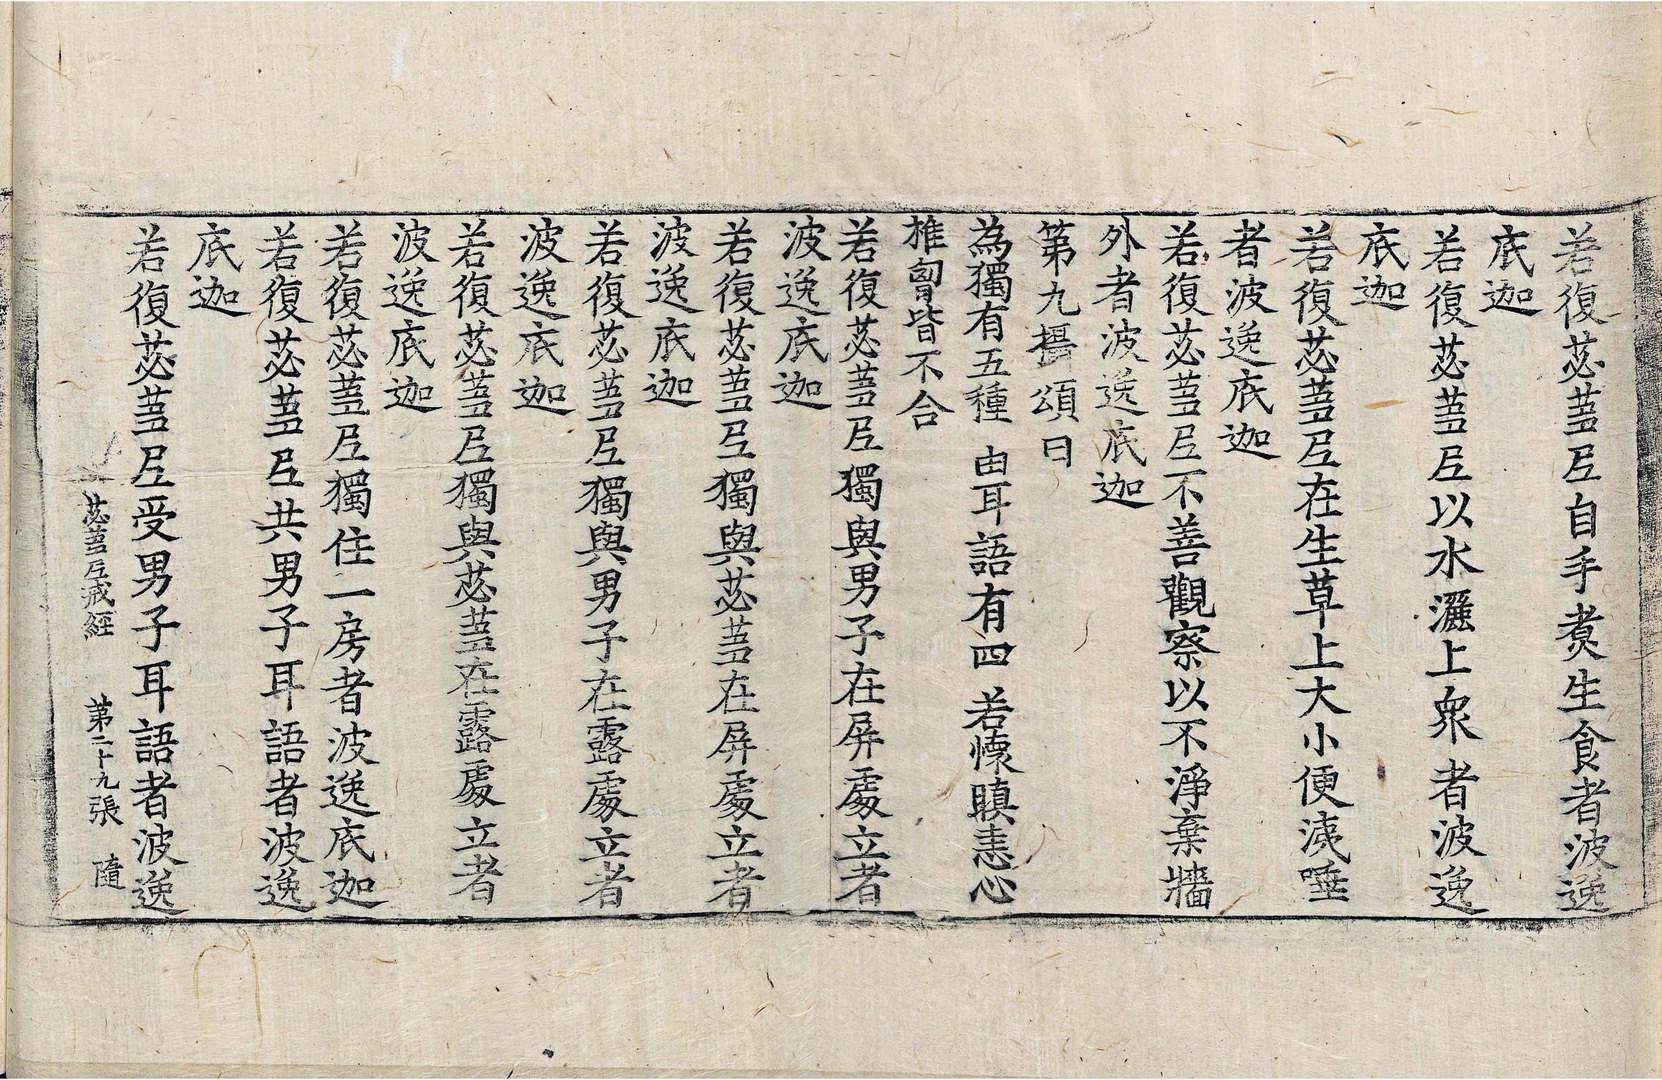 若復苾蒭尼自手煑生食者波逸
底迦
若復苾蒭尼以水灑上衆者波逸
底迦
若復苾蒭尼在生草上大小便洟唾
者波逸底迦
若復苾蒭尼不善觀察以不淨棄牆
外者波逸底迦
第九攝頌曰
為獨有五種 由耳語有四 若懷瞋恚心
椎胷皆不合
若復苾蒭尼獨與男子在屏處立者
波逸底迦
若復苾蒭尼獨與苾蒭在屏處立者
波逸底迦
若復苾蒭尼獨與男子在露處立者
波逸底迦
若復苾蒭尼獨與苾蒭在露處立者
波逸底迦
若復苾蒭尼獨住一房者波逸底迦
若復苾蒭尼共男子耳語者波逸
底迦
若復苾蒭尼受男子耳語者波逸
苾蒭尼戒經 第二十九張 隨